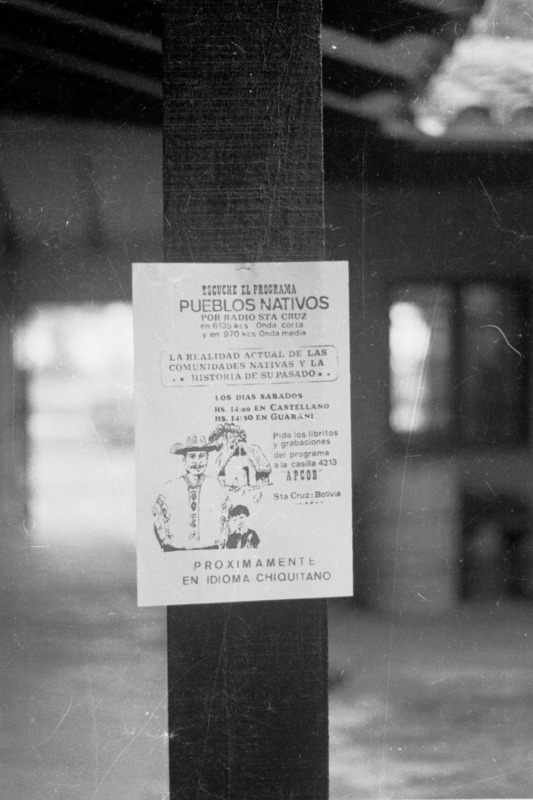 ESCUCHE EL PROGRAMA
PUEBLOS NATIVOS
POR RADIO STA CRUZ
en 6135 kcs Onda corta
y en 970 kcs Onda media
LA REALIDAD ACTUAL DE LAS
COMUNIDADES NATIVAS Y LA
HISTORIA DE SU PASADO
LOS DIAS SABADOS
HS. 14:00 EN CASTELLANO
HS. 14:30 EN GUARANI
Pida los libritos
y grabaciones
del programa
a la casilla 4213
"APCOB"
Sta Cruz: Bolivia
PROXIMAMENTE
EN IDIOMA CHIQUITANO